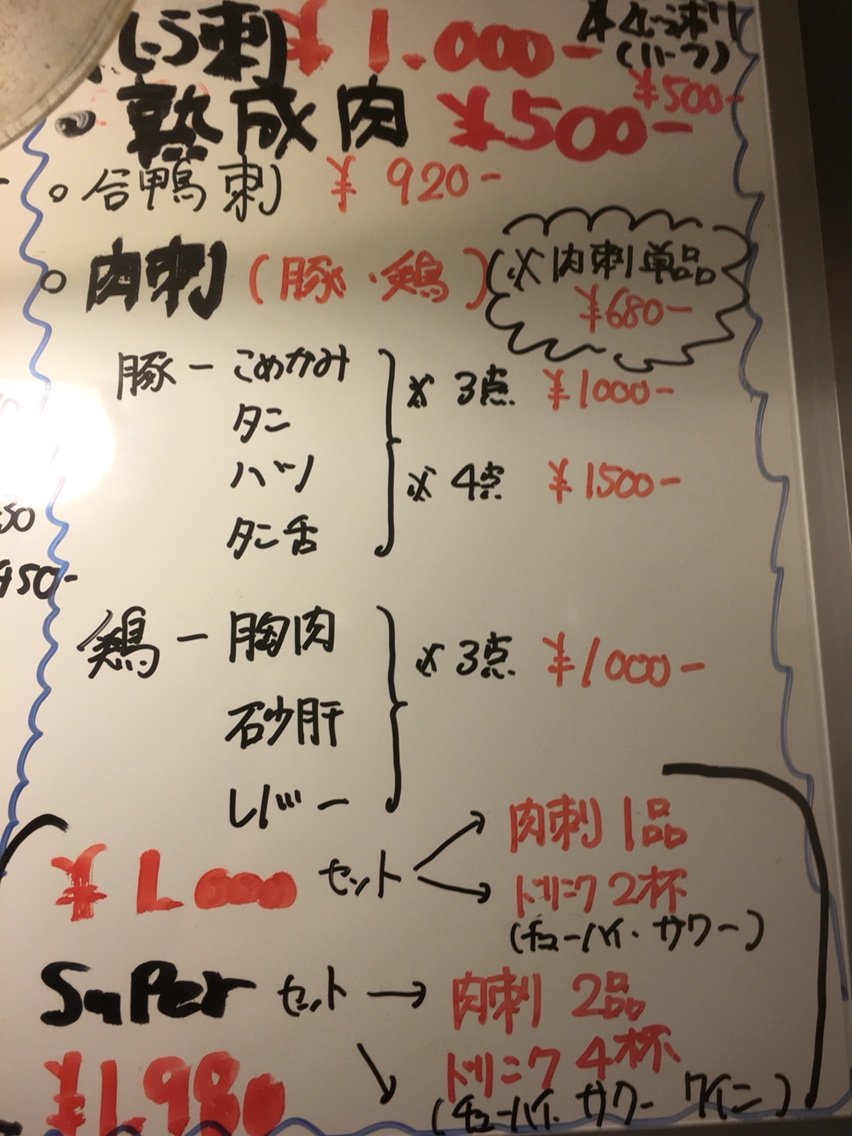 刺 ¥1.000-
(ハーフ)
¥500-
• 熟成肉 ¥500-
○ 合鴨刺 ¥920-
○ 肉刺 (豚・鶏) (※肉刺単品 ¥680-
豚 - こめかみ
タン
ハツ
タン舌
※3点 ¥1000-
※4点 ¥1500-
鶏 - 胸肉
砂肝
レバー
※3点 ¥1000-
¥1000 セット → 肉刺1品
→ ドリンク2杯
(チューハイ・サワー)
SuPer セット → 肉刺 2品
¥1980 → ドリンク4杯
(チューハイ・サワー ワイン)
30
950-